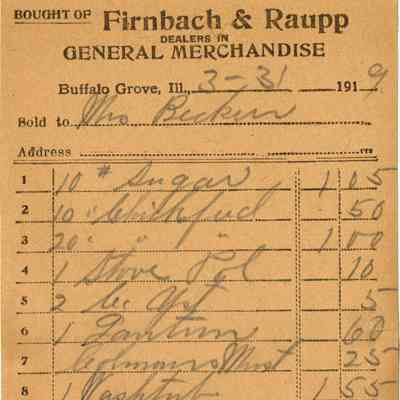 BOUGHT OF Firnbach & Raupp
DEALERS IN
GENERAL MERCHANDISE
Buffalo Grove, Ill., 3-31 1919
Sold to
Address
1 10 # Sugar 1 05
2 10 " 50
3 20 " " " 1 00
4 1 Stove Pol 10
5 2 5
6 1 60
7 Colmans Must 25
8 1 Washtub 1 55